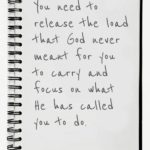 You need to
release the load
that God never
meant for you
to carry and
focus on what
He has called
you to do.